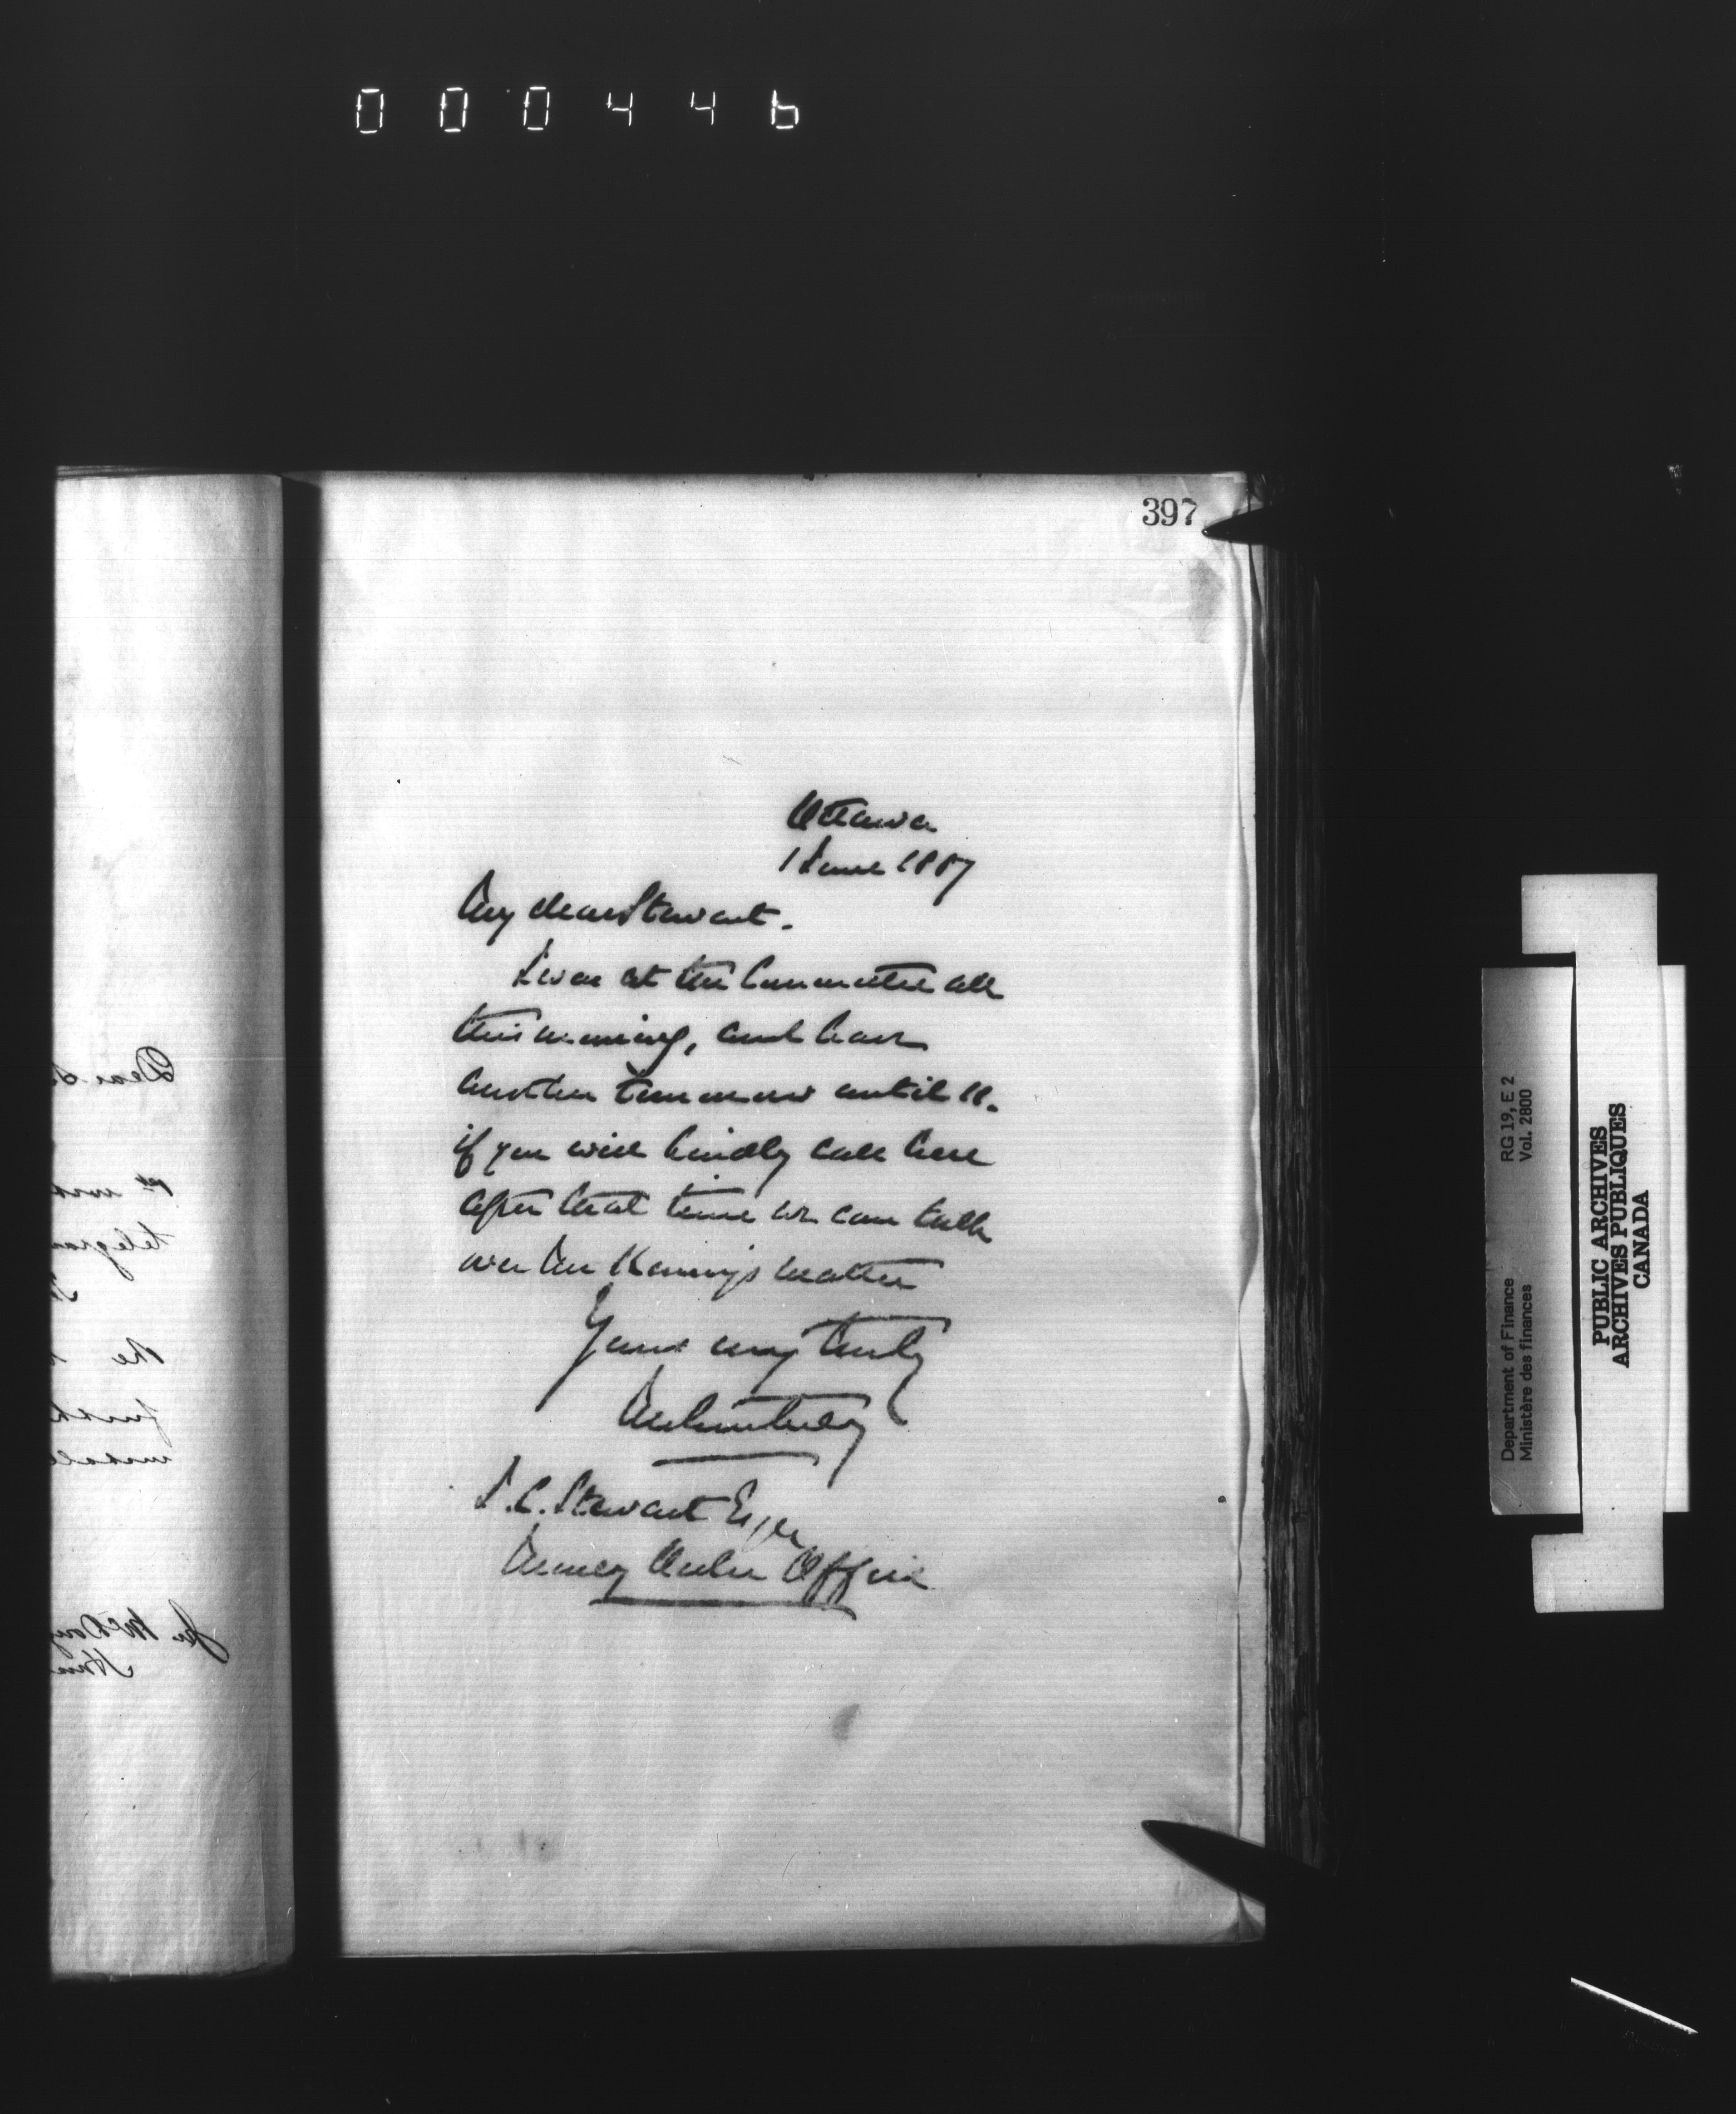 000446
397
Ottawa
1 June 1887
My dear Stewart.
I was at the Committee all
this morning, and have
another tomorrow until 11.
if you will kindly call here
after that time we can talk
over Mr Kenny's matter
Yours very truly
J.C. Stewart Esqre
Money Order Office
Dear
telegra
the
RG 19, E 2
Vol. 2800
Department of Finance
Ministère des finances
PUBLIC ARCHIVES
ARCHIVES PUBLIQUES
CANADA